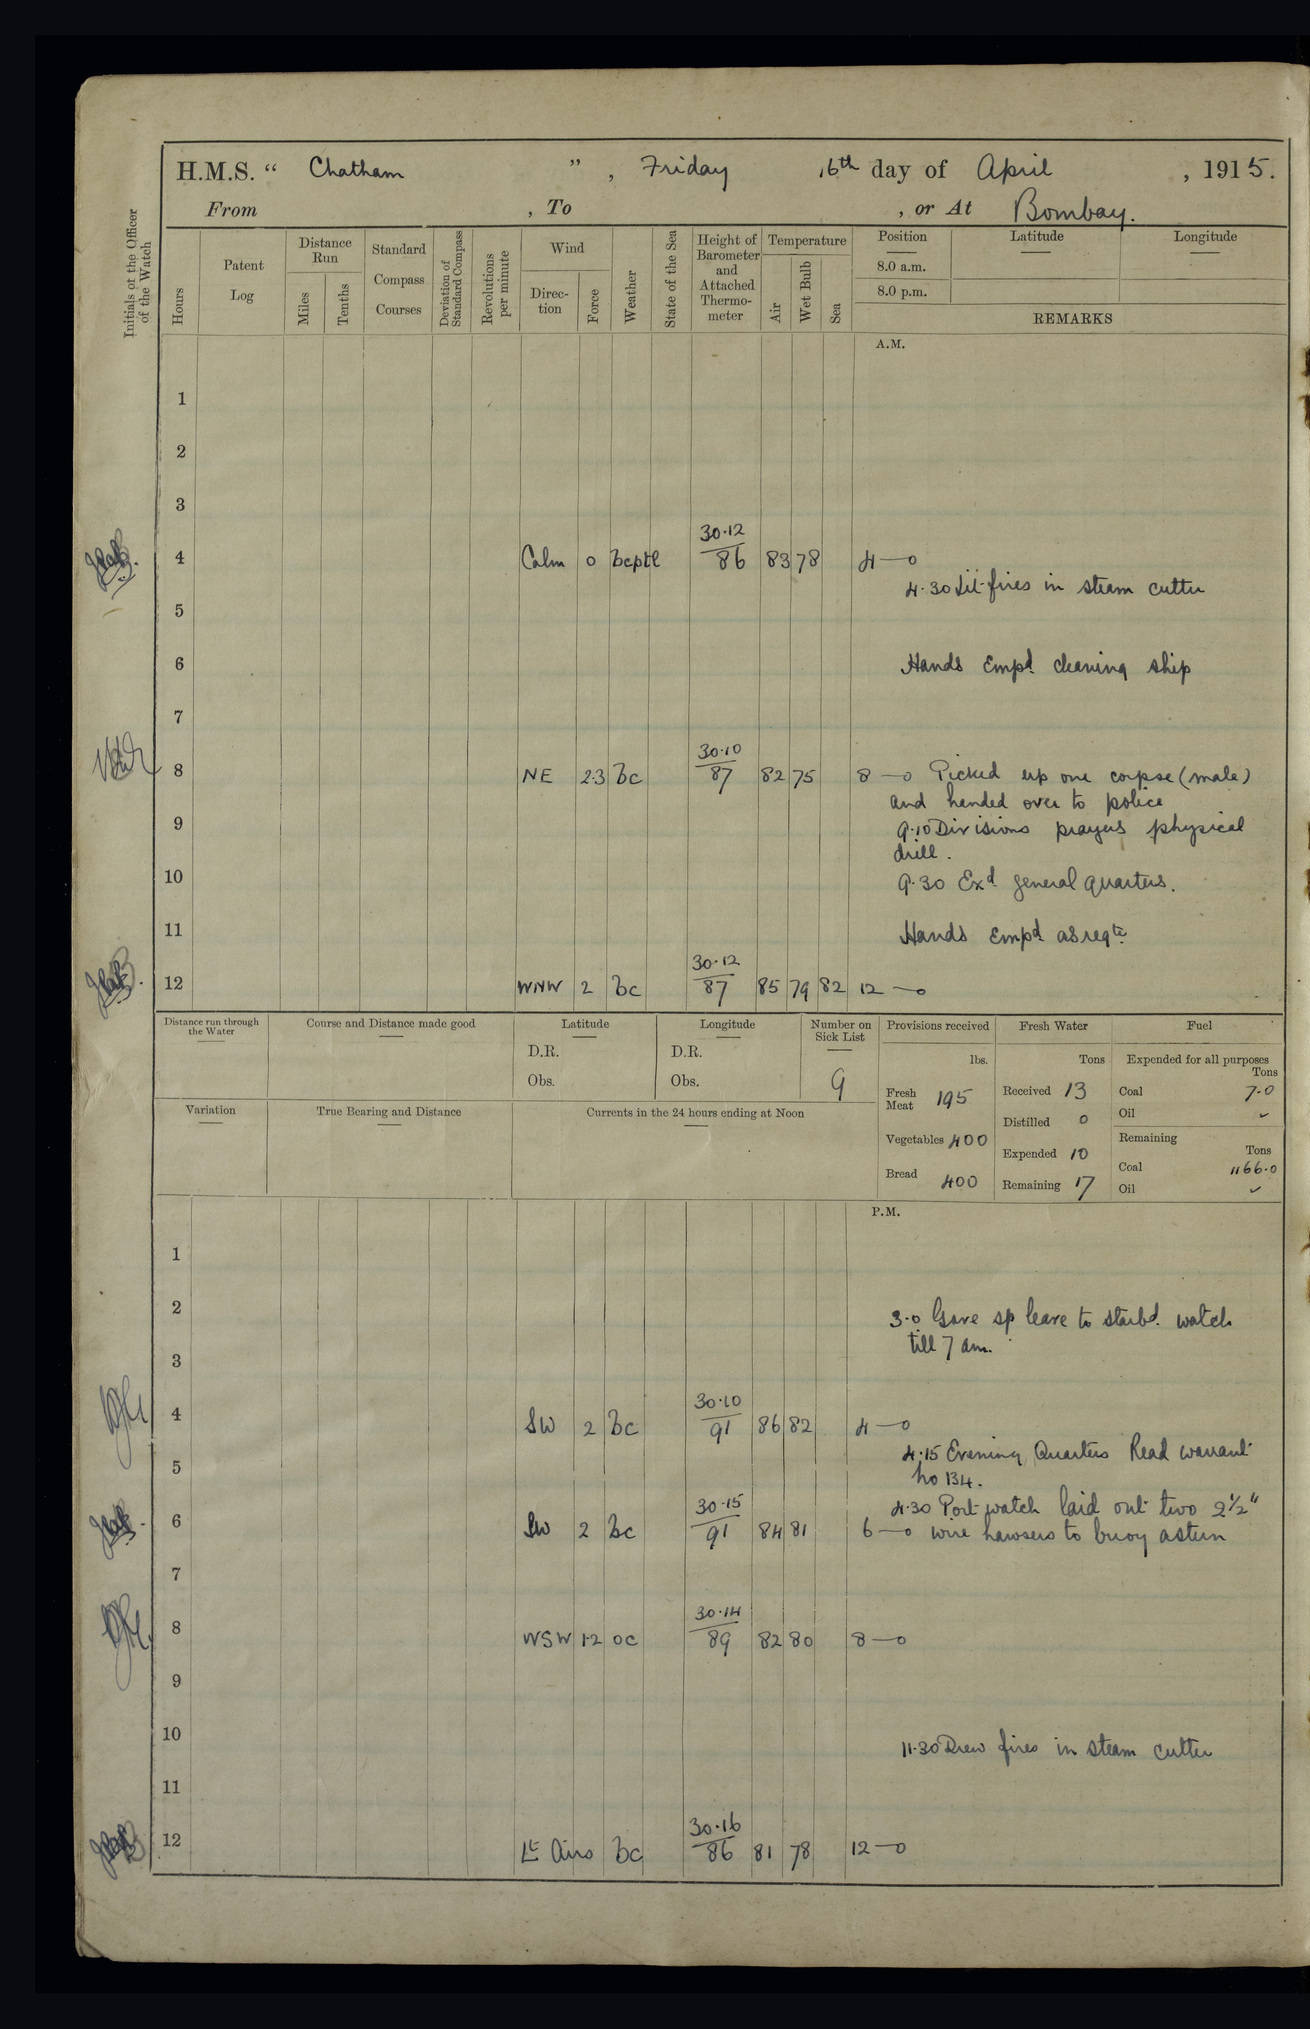 H.M.S. “ Chatham ” , Friday 16th day of April , 1915.
From , To , or At Bombay.
Initials of the Officer of the Watch
Hours
Patent Log
Distance Run
Miles
Tenths
Standard Compass Courses
Deviation of Standard Compass
Revolutions per minute
Wind
Direc-tion
Force
Weather
State of the Sea
Height of Barometer and Attached Thermo-meter
Temperature
Air
Wet Bulb
Sea
Position
8.0 a.m.
8.0 p.m.
Latitude
Longitude
REMARKS
A.M.
1
2
3
4 Calm 0 bcptl 30.12/86 83 78 4—0
4.30 Lit fires in steam cutter
5
6 Hands Empd cleaning ship
7
8 NE 2.3 bc 30.10/87 82 75 8—0 Picked up one corpse (male)
and handed over to police
9 9.10 Divisions prayers physical
drill.
10 9.30 Exd general quarters.
11 Hands Empd as reqte
12 WNW 2 bc 30.12/87 85 79 82 12—0
Distance run through the Water
Course and Distance made good
Latitude
D.R.
Obs.
Longitude
D.R.
Obs.
Number on Sick List
9
Variation
True Bearing and Distance
Currents in the 24 hours ending at Noon
Provisions received
lbs.
Fresh Meat 195
Vegetables 400
Bread 400
Fresh Water
Tons
Received 13
Distilled 0
Expended 10
Remaining 17
Fuel
Expended for all purposes
Tons
Coal 7.0
Oil ✓
Remaining
Tons
Coal 1166.0
Oil ✓
P.M.
1
2 3.0 Gave sp leave to starbd. watch
till 7 am.
3
4 SW 2 bc 30.10/91 86 82 4—0
4.15 Evening Quarters Read warrant
5 No 134.
4.30 Port watch laid out two 2½"
6 SW 2 bc 30.15/91 84 81 6—0 wire hawsers to buoy astern
7
8 WSW 1.2 oc 30.14/89 82 80 8—0
9
10 11.30 Drew fires in steam cutter
11
12 Lt Airs bc 30.16/86 81 78 12—0